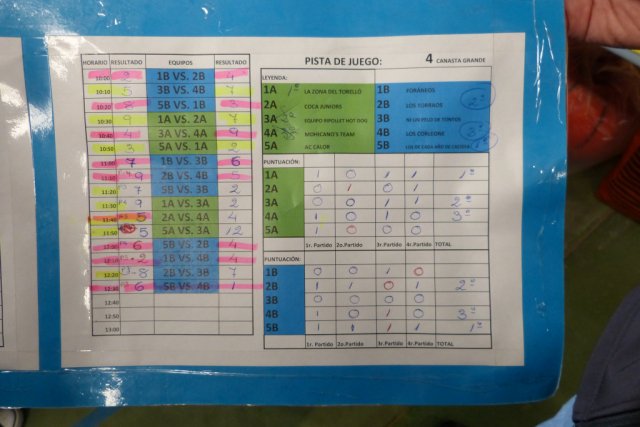 HORARIO RESULTADO EQUIPOS RESULTADO
10:00 1B VS. 2B 4
10:10 5 3B VS. 4B 7
10:20 8 5B VS. 1B 3
10:30 9 1A VS. 2A 7
10:40 4 3A VS. 4A 9
10:50 3 5A VS. 1A 2
11:00 7 1B VS. 3B 6
11:10 9 2B VS. 4B 5
11:20 7 5B VS. 3B 2
11:30 9 1A VS. 3A 2
11:40 5 2A VS. 4A 4
11:50 5 5A VS. 3A 12
12:00 6 5B VS. 2B 4
12:10 2 1B VS. 4B 4
12:20 8 2B VS. 3B 7
12:30 6 5B VS. 4B 1
12:40
12:50
13:00
PISTA DE JUEGO: 4 CANASTA GRANDE
LEYENDA:
1A LA ZONA DEL TORELLO 1B FORÁNEOS
2A COCA JUNIORS 2B LOS TORRAOS
3A EQUIPO RIPOLLET HOT DOG 3B NI UN PELO DE TONTOS
4A MOHICANO'S TEAM 4B LOS CORLEONE
5A AC CALOR 5B LOS DE CADA AÑO DE
PUNTUACIÓN:
1A 1 0 1 1 1º
2A 0 1 0 1
3A 1 1 0 0 2º
4A 1 0 1 0 3º
5A 1 0 0 0
1r. Partido 2o.Partido 3r.Partido 4r.Partido TOTAL
PUNTUACIÓN:
1B 0 0 1 0
2B 1 1 0 1 2º
3B 0 0 0 0
4B 1 0 1 0 3º
5B 1 1 1 1 1º
1r. Partido 2o.Partido 3r.Partido 4r.Partido TOTAL